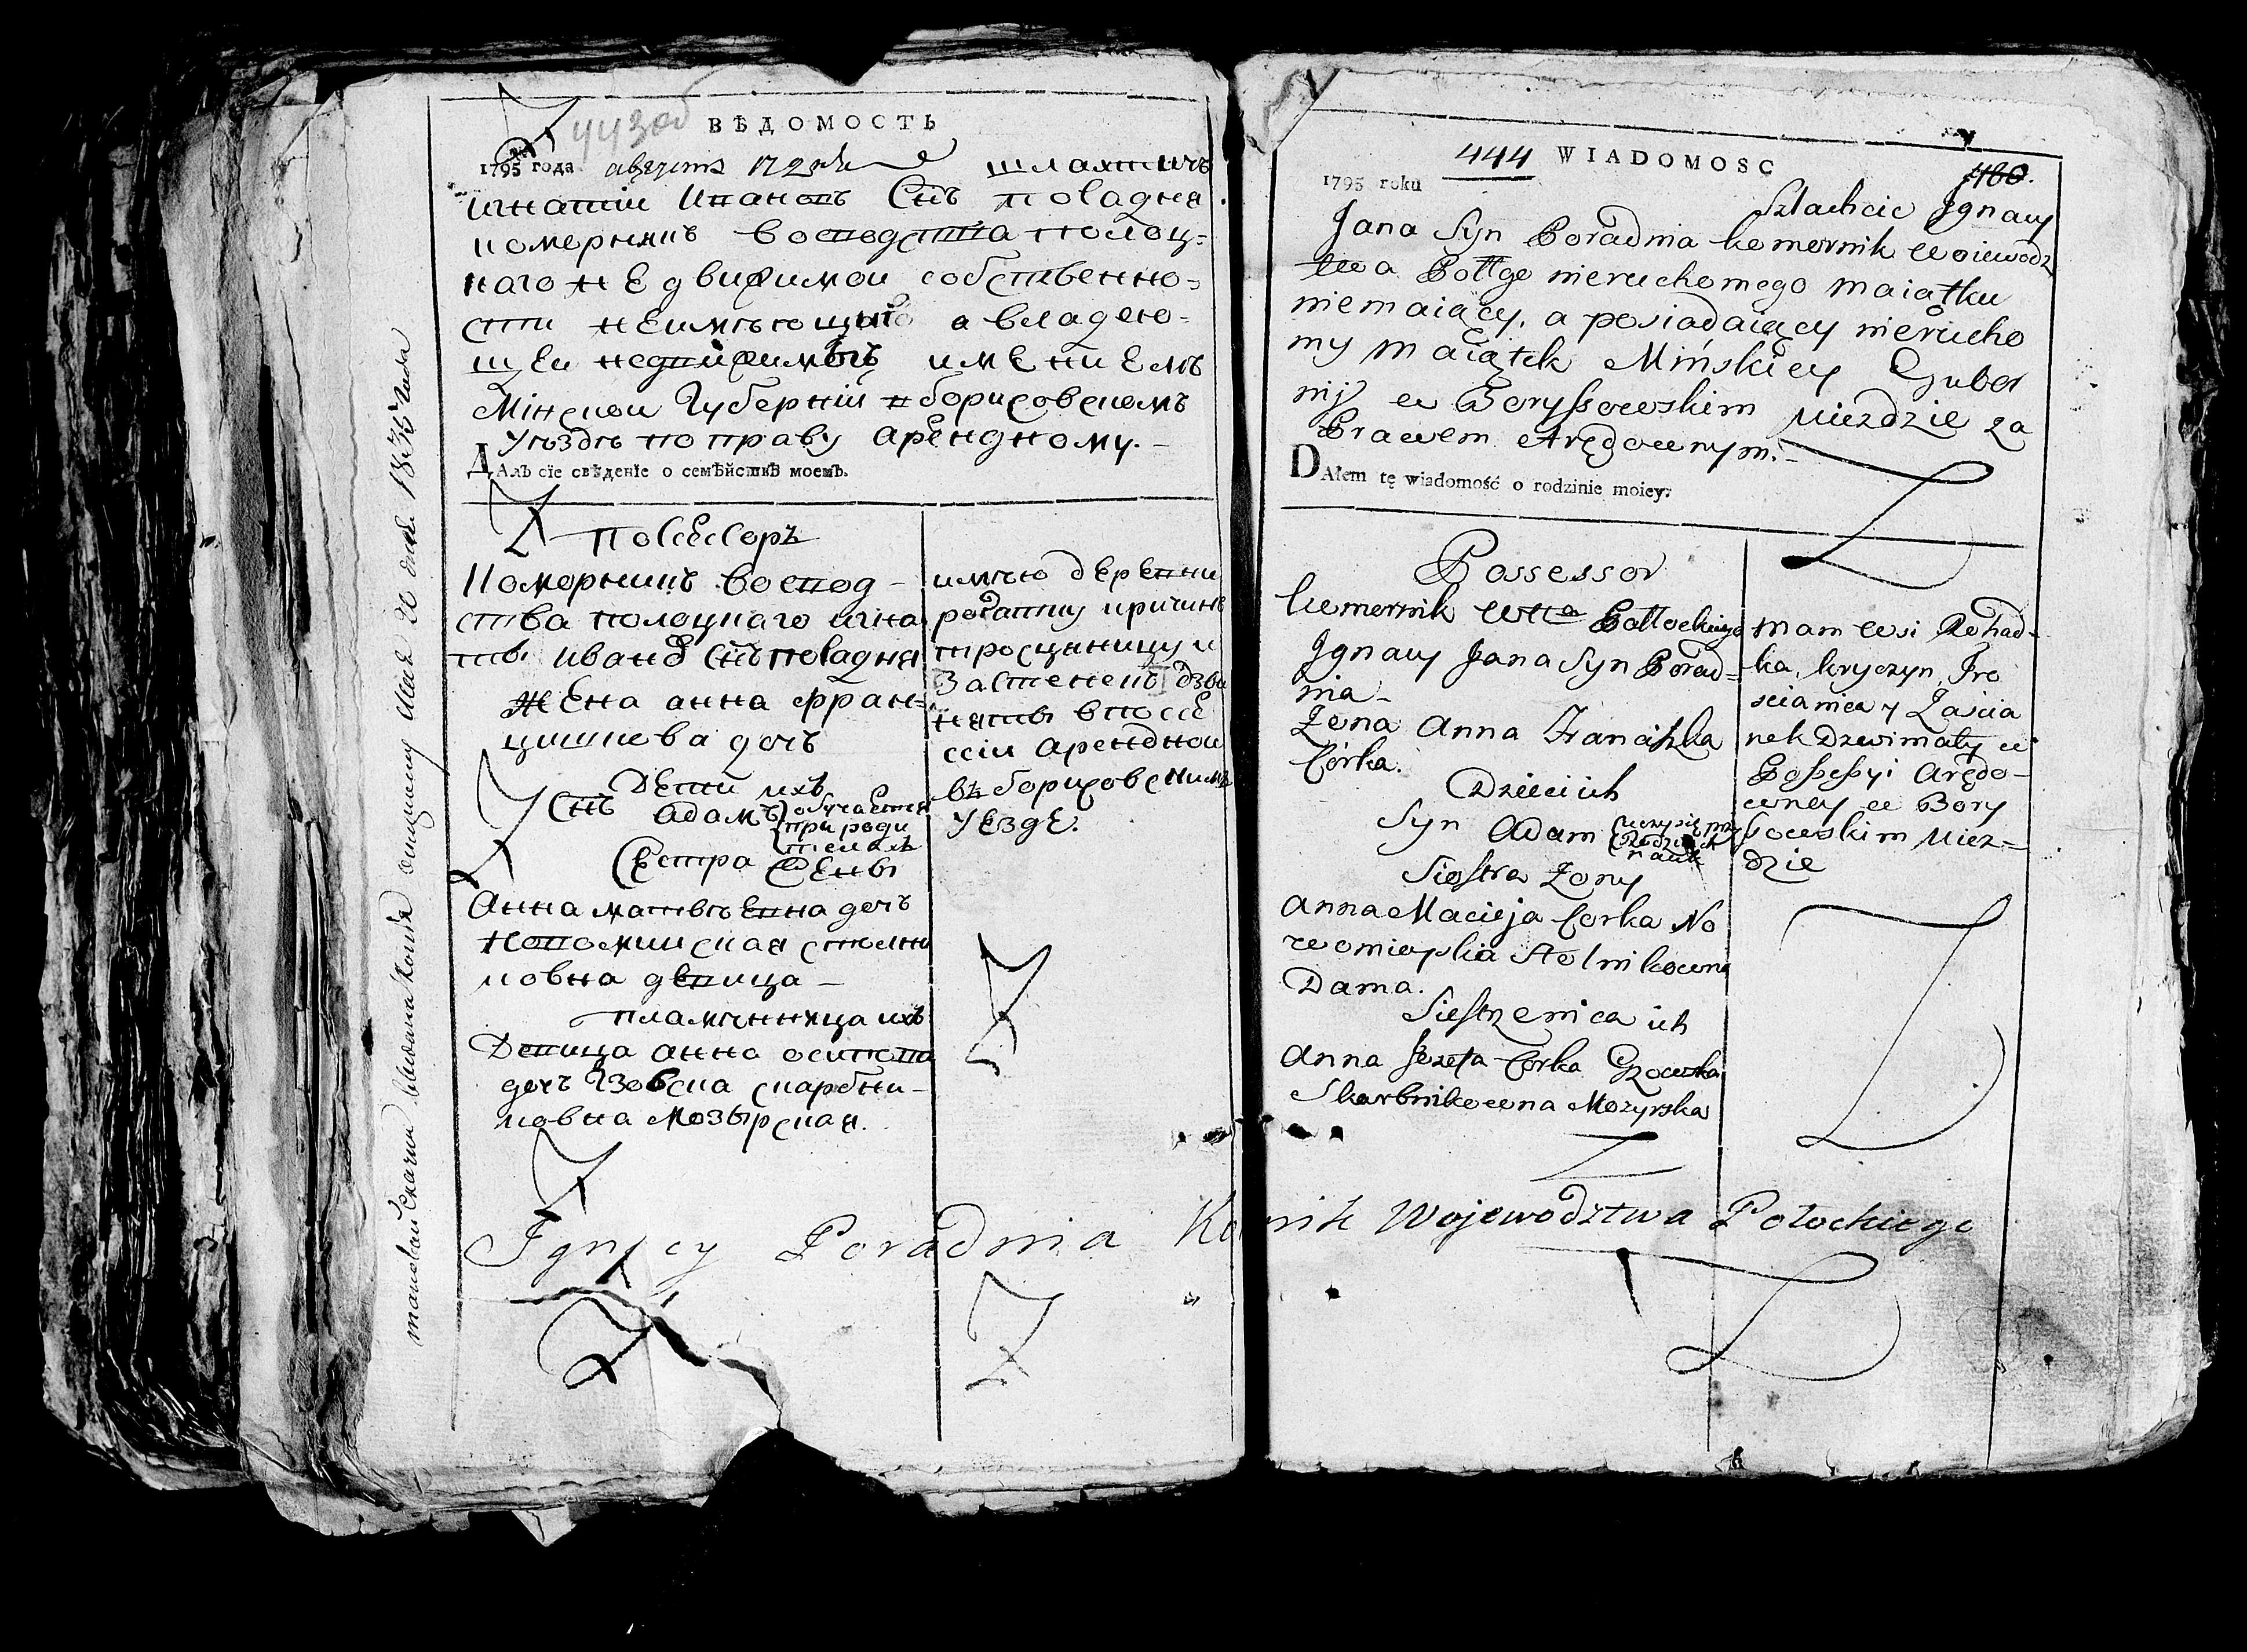 443об
ВѢДОМОСТЬ
1795 года августа 17 дня шляхтичъ
игнатіи Ивановъ Снъ пораднꙗ
коморникъ воеводства полоц-
каго недвижимои собственно-
сти неимѣющій а владею-
щеи недвижимымъ имениемъ
Мінской Губерніи в борисовскомъ
уѣздѣ по праву арендному.
ДАлъ сїе свѣденїе о семѣйствѣ моемъ.
посесоръ
Коморникъ воевод-
ства полоцкаго игна
иванов Снъ пораднꙗ
жена анна фран-
цишкова дочь
Дети ихъ
Снъ адамъ обучается
при роди
телахъ
Сестра жены
Анна матвѣевна дочь
новомииская столни
ковна девица
пламѣнница ихъ
Девица анна осипова
дочь Гзовска скарбни-
ковна мозырская.
имѣю деревни
рогатку кричинъ
тросцяницу и
застенекъ дзви
няты в посе
сіи арендной
въ борисовскимъ
уезде.
444 WIADOMOSC
1795 roku 480.
Szlachcic Jgnacy
Jana Syn Poradnia komornik woiewodz
twa Połłgo nieruchomego maiątku
niemaiący, a posiadaiący nierucho
my maiątek Mińskiey Guber
nij w Boryssowskim uiezdzie za
Prawem Arędownym.
DAłem tę wiadomość o rodzinie moiey:
Possessor
komornik wtta Połłockiego
Jgnacy Jana Syn Porad-
nia
Żona Anna Franciszka
Córka.
Dzieci ich
Syn Adam uczy się przy
Rodzicach
nauk
Siostra Żony
Anna Macieja Corka No
womieyska Stolnikowna
Dama.
Siestrzenica ich
Anna Jozefa Corka Gzowska
Skarbnikowna Mozyrska
mam wsi Rohad-
ka, kryczyn, Tro
scianica y Zascia
nek Dzwiniaty w
Possessyi Arędo-
wney w Bory
ssowskim uiez-
dzie
Ignacy Poradnia Ko nik Wojewodztwa Połockiego